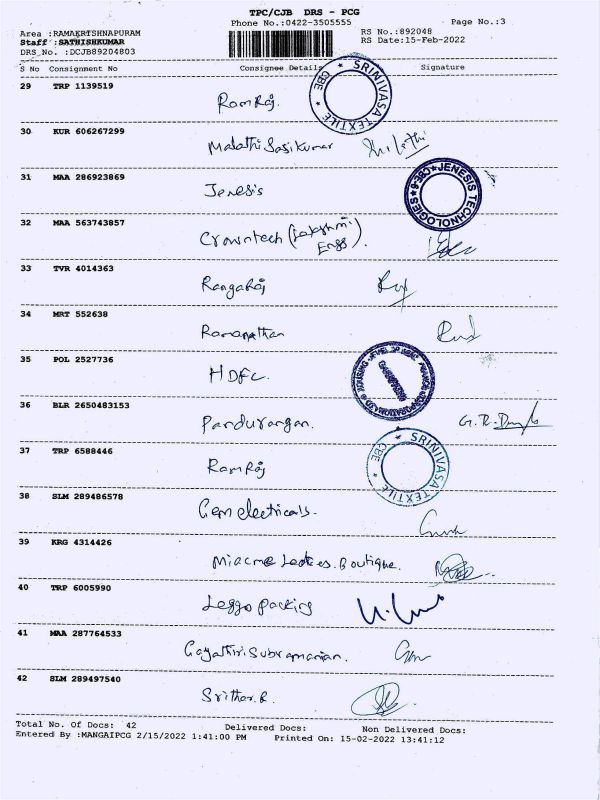 TPC/CJB DRS - PCG
Phone No.:0422-3505555 Page No.:3
Area :RAMAKRISHNAPURAM RS No.:892048
Staff :SATHISHKUMAR RS Date:15-Feb-2022
DRS No. :DCJB89204803
S No Consignment No Consignee Details Signature
29 TRP 1139519
RamRaj. SRINIVASA TEXTILE * CBE *
30 KUR 606267299
Malathi Sasikumar
31 MAA 286923869
Jenesis JENESIS TECHNOLOGIES * CBE-6 *
32 MAA 563743857
Crowntech (Lakshmi
Engg).
33 TVR 4014363
RangaRaj Raj
34 MRT 552638
Ramanathan
35 POL 2527736
HDFC.
36 BLR 2650483153
Pandurangan.
37 TRP 6588446
RamRaj SRINIVASA TEXTILE * CBE *
38 SLM 289486578
Gem electicals.
39 KRG 4314426
Miacme Ladies. Boutique.
40 TRP 6005990
Leggo packing
41 MAA 287764533
Gayathri. Subramanian.
42 SLM 289497540
Srithar. R.
Total No. Of Docs: 42 Delivered Docs: Non Delivered Docs:
Entered By :MANGAIPCG 2/15/2022 1:41:00 PM Printed On: 15-02-2022 13:41:12